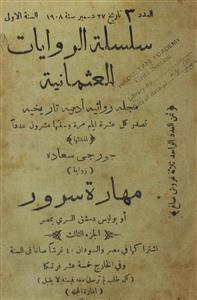 العدد ٣ تاريخ ٢٧ دسمبر سنة ١٩٠٨ السنة الاولى
سلسلة الروايات
العثمانية
مجلة روائية ادبية تاريخية
تصدر كل عشرة ايام مرة وسنتها عشرون عدداً
لمنشئها
جورجي سعادة
( رواية )
مهارة سرور
او بوليس دمشق السري بمصر
الجزء الثالث
اشتراكها في مصر والسودان ٤٠ غرشاً صاغاً في السنة
وفي الخارج خمسة عشر فرنكاً
( كل طلب لا ترسل معه قيمته لا يقبل )
ثمن العدد الواحد ثلاثة غروش صاغ